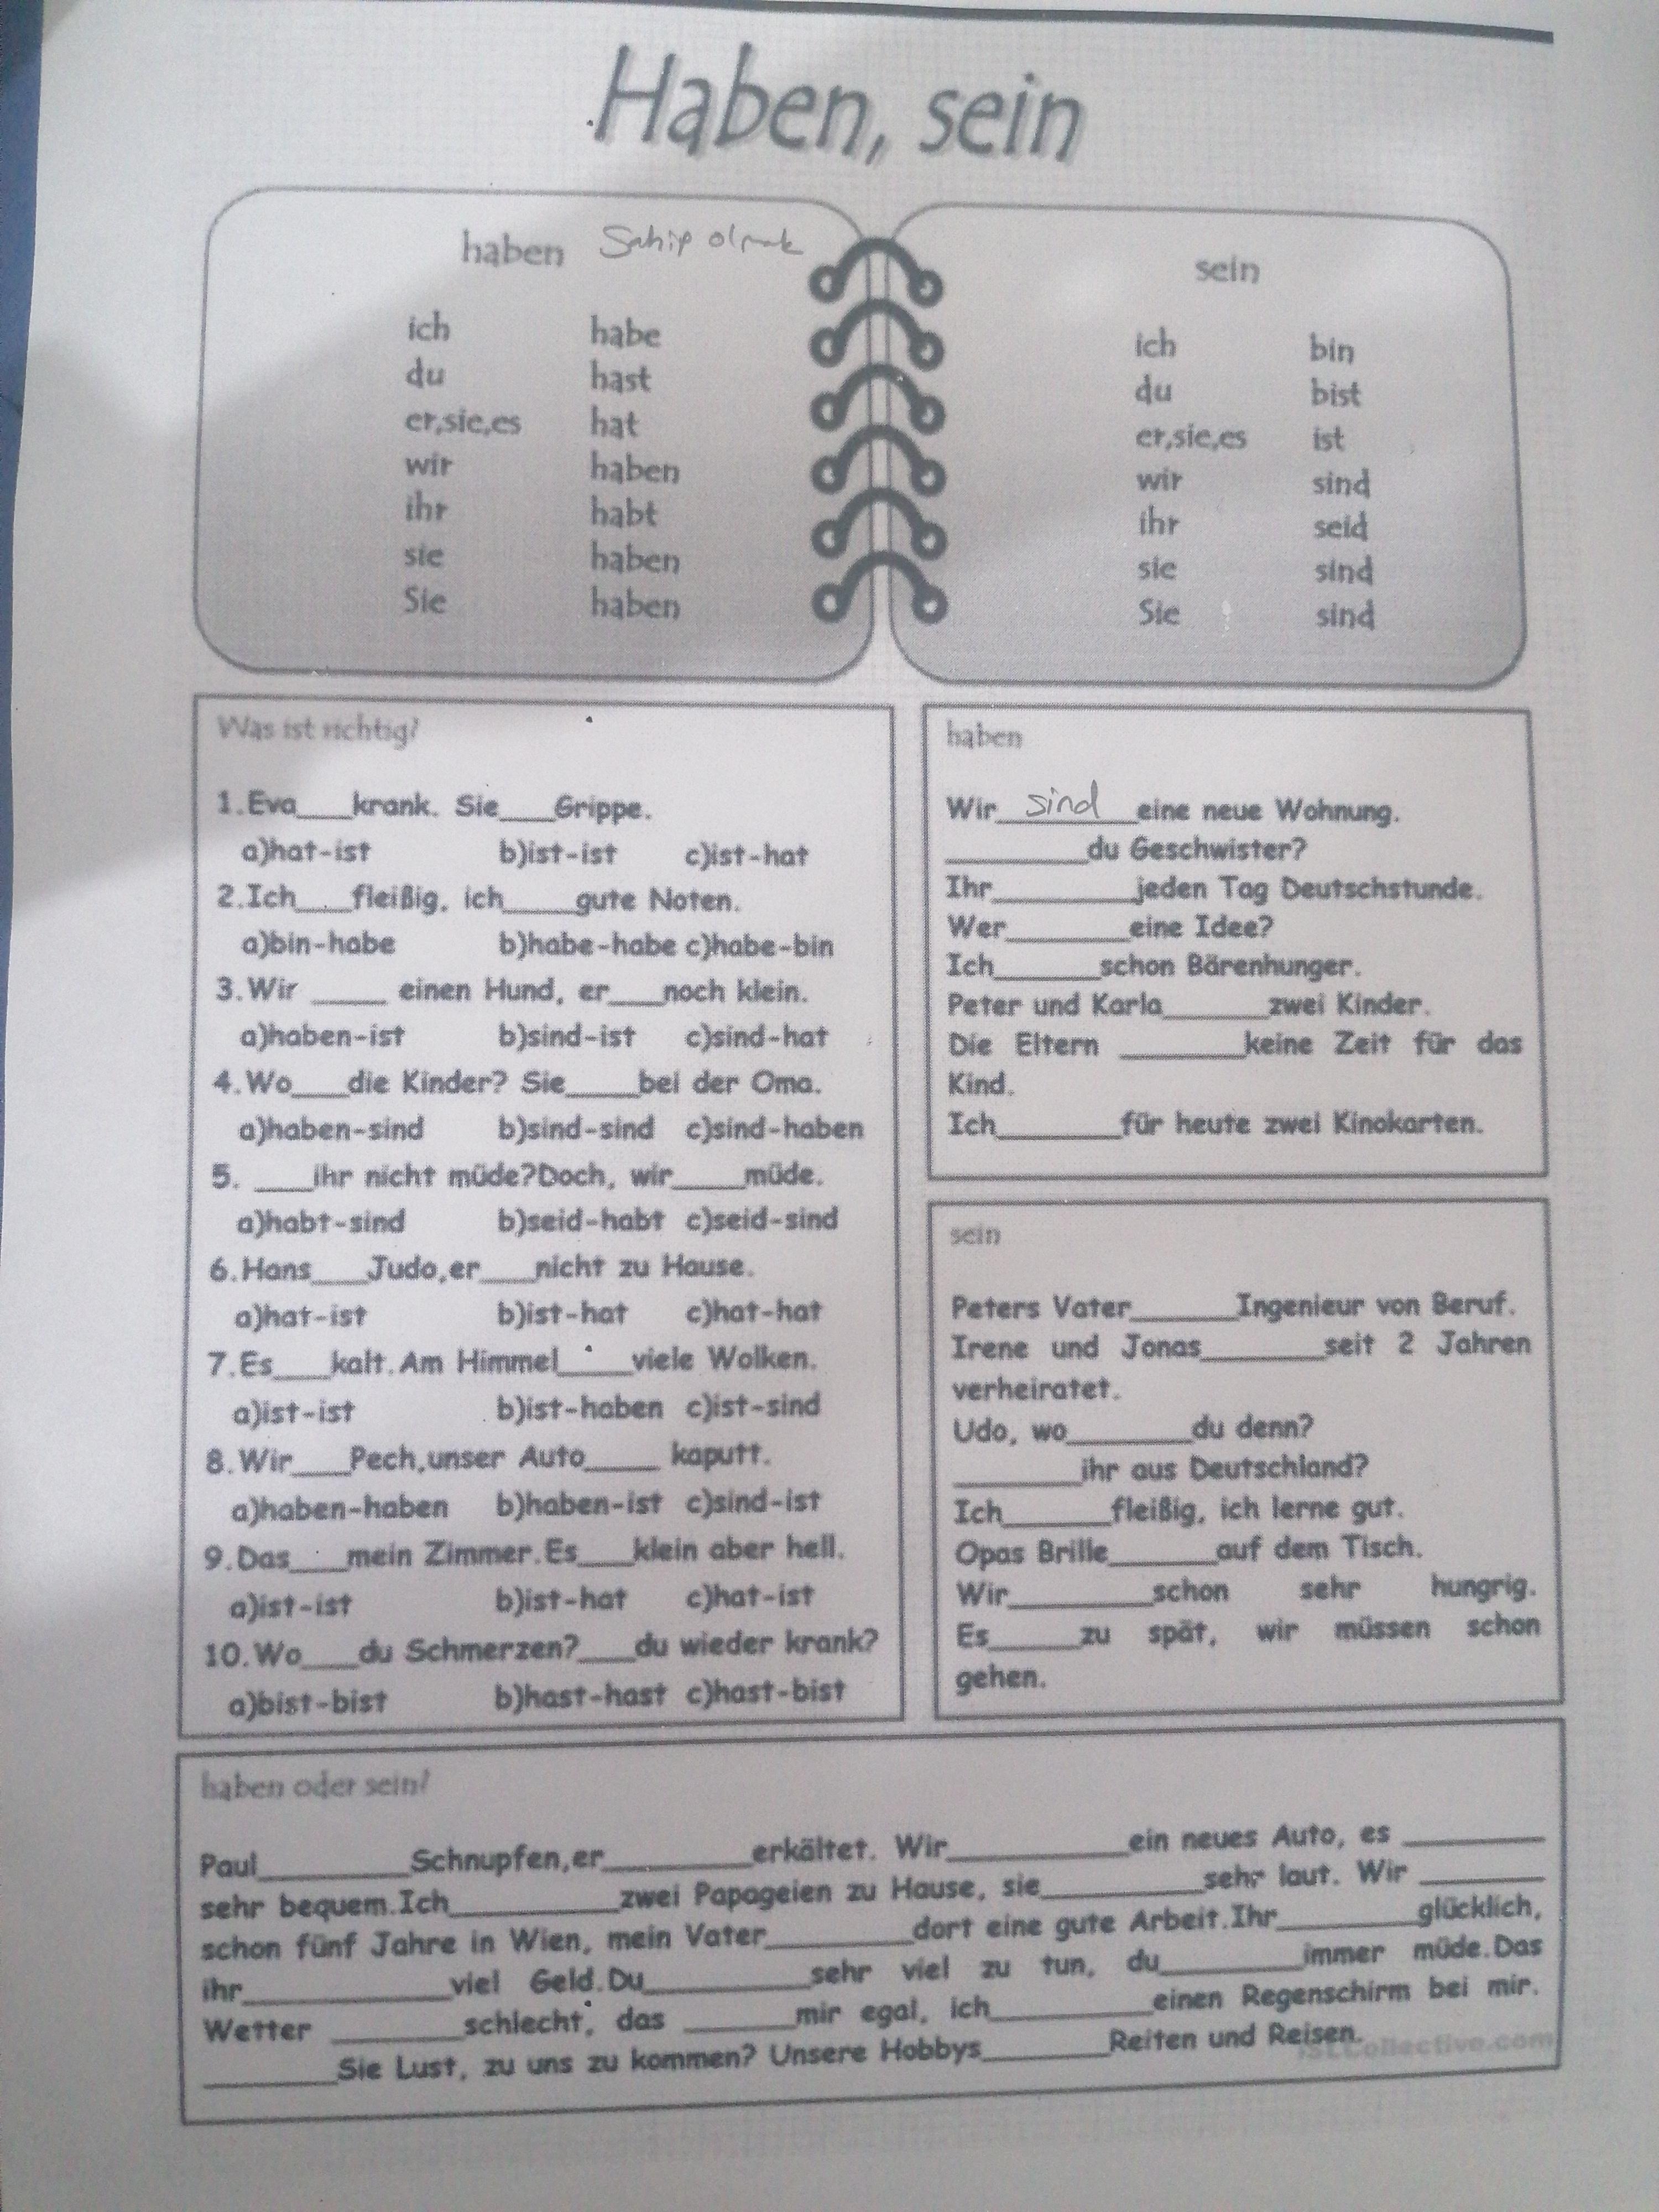 Haben, sein
haben Sahip olmak
ich habe
du hast
er,sie,es hat
wir haben
ihr habt
sie haben
Sie haben
sein
ich bin
du bist
er,sie,es ist
wir sind
ihr seid
sie sind
Sie sind
Was ist richtig?
1.Eva___krank. Sie___Grippe.
a)hat-ist b)ist-ist c)ist-hat
2.Ich___fleißig, ich____gute Noten.
a)bin-habe b)habe-habe c)habe-bin
3.Wir ____ einen Hund, er___noch klein.
a)haben-ist b)sind-ist c)sind-hat
4.Wo___die Kinder? Sie____bei der Oma.
a)haben-sind b)sind-sind c)sind-haben
5. ___ihr nicht müde?Doch, wir____müde.
a)habt-sind b)seid-habt c)seid-sind
6.Hans___Judo,er___nicht zu Hause.
a)hat-ist b)ist-hat c)hat-hat
7.Es___kalt.Am Himmel____viele Wolken.
a)ist-ist b)ist-haben c)ist-sind
8.Wir___Pech,unser Auto____ kaputt.
a)haben-haben b)haben-ist c)sind-ist
9.Das___mein Zimmer.Es___klein aber hell.
a)ist-ist b)ist-hat c)hat-ist
10.Wo___du Schmerzen?___du wieder krank?
a)bist-bist b)hast-hast c)hast-bist
haben
Wir sind eine neue Wohnung.
________du Geschwister?
Ihr________jeden Tag Deutschstunde.
Wer_______eine Idee?
Ich______schon Bärenhunger.
Peter und Karla______zwei Kinder.
Die Eltern _______keine Zeit für das
Kind.
Ich_______für heute zwei Kinokarten.
sein
Peters Vater______Ingenieur von Beruf.
Irene und Jonas_______seit 2 Jahren
verheiratet.
Udo, wo_______du denn?
_______ihr aus Deutschland?
Ich______fleißig, ich lerne gut.
Opas Brille______auf dem Tisch.
Wir________schon sehr hungrig.
Es_____zu spät, wir müssen schon
gehen.
haben oder sein?
Paul________Schnupfen,er________erkältet. Wir__________ein neues Auto, es ________
sehr bequem.Ich_________zwei Papageien zu Hause, sie_________sehr laut. Wir _______
schon fünf Jahre in Wien, mein Vater________dort eine gute Arbeit.Ihr________glücklich,
ihr___________viel Geld.Du_________sehr viel zu tun, du________immer müde.Das
Wetter _______schlecht, das ______mir egal, ich_________einen Regenschirm bei mir.
_______Sie Lust, zu uns zu kommen? Unsere Hobbys_______Reiten und Reisen.
iSLCollective.com